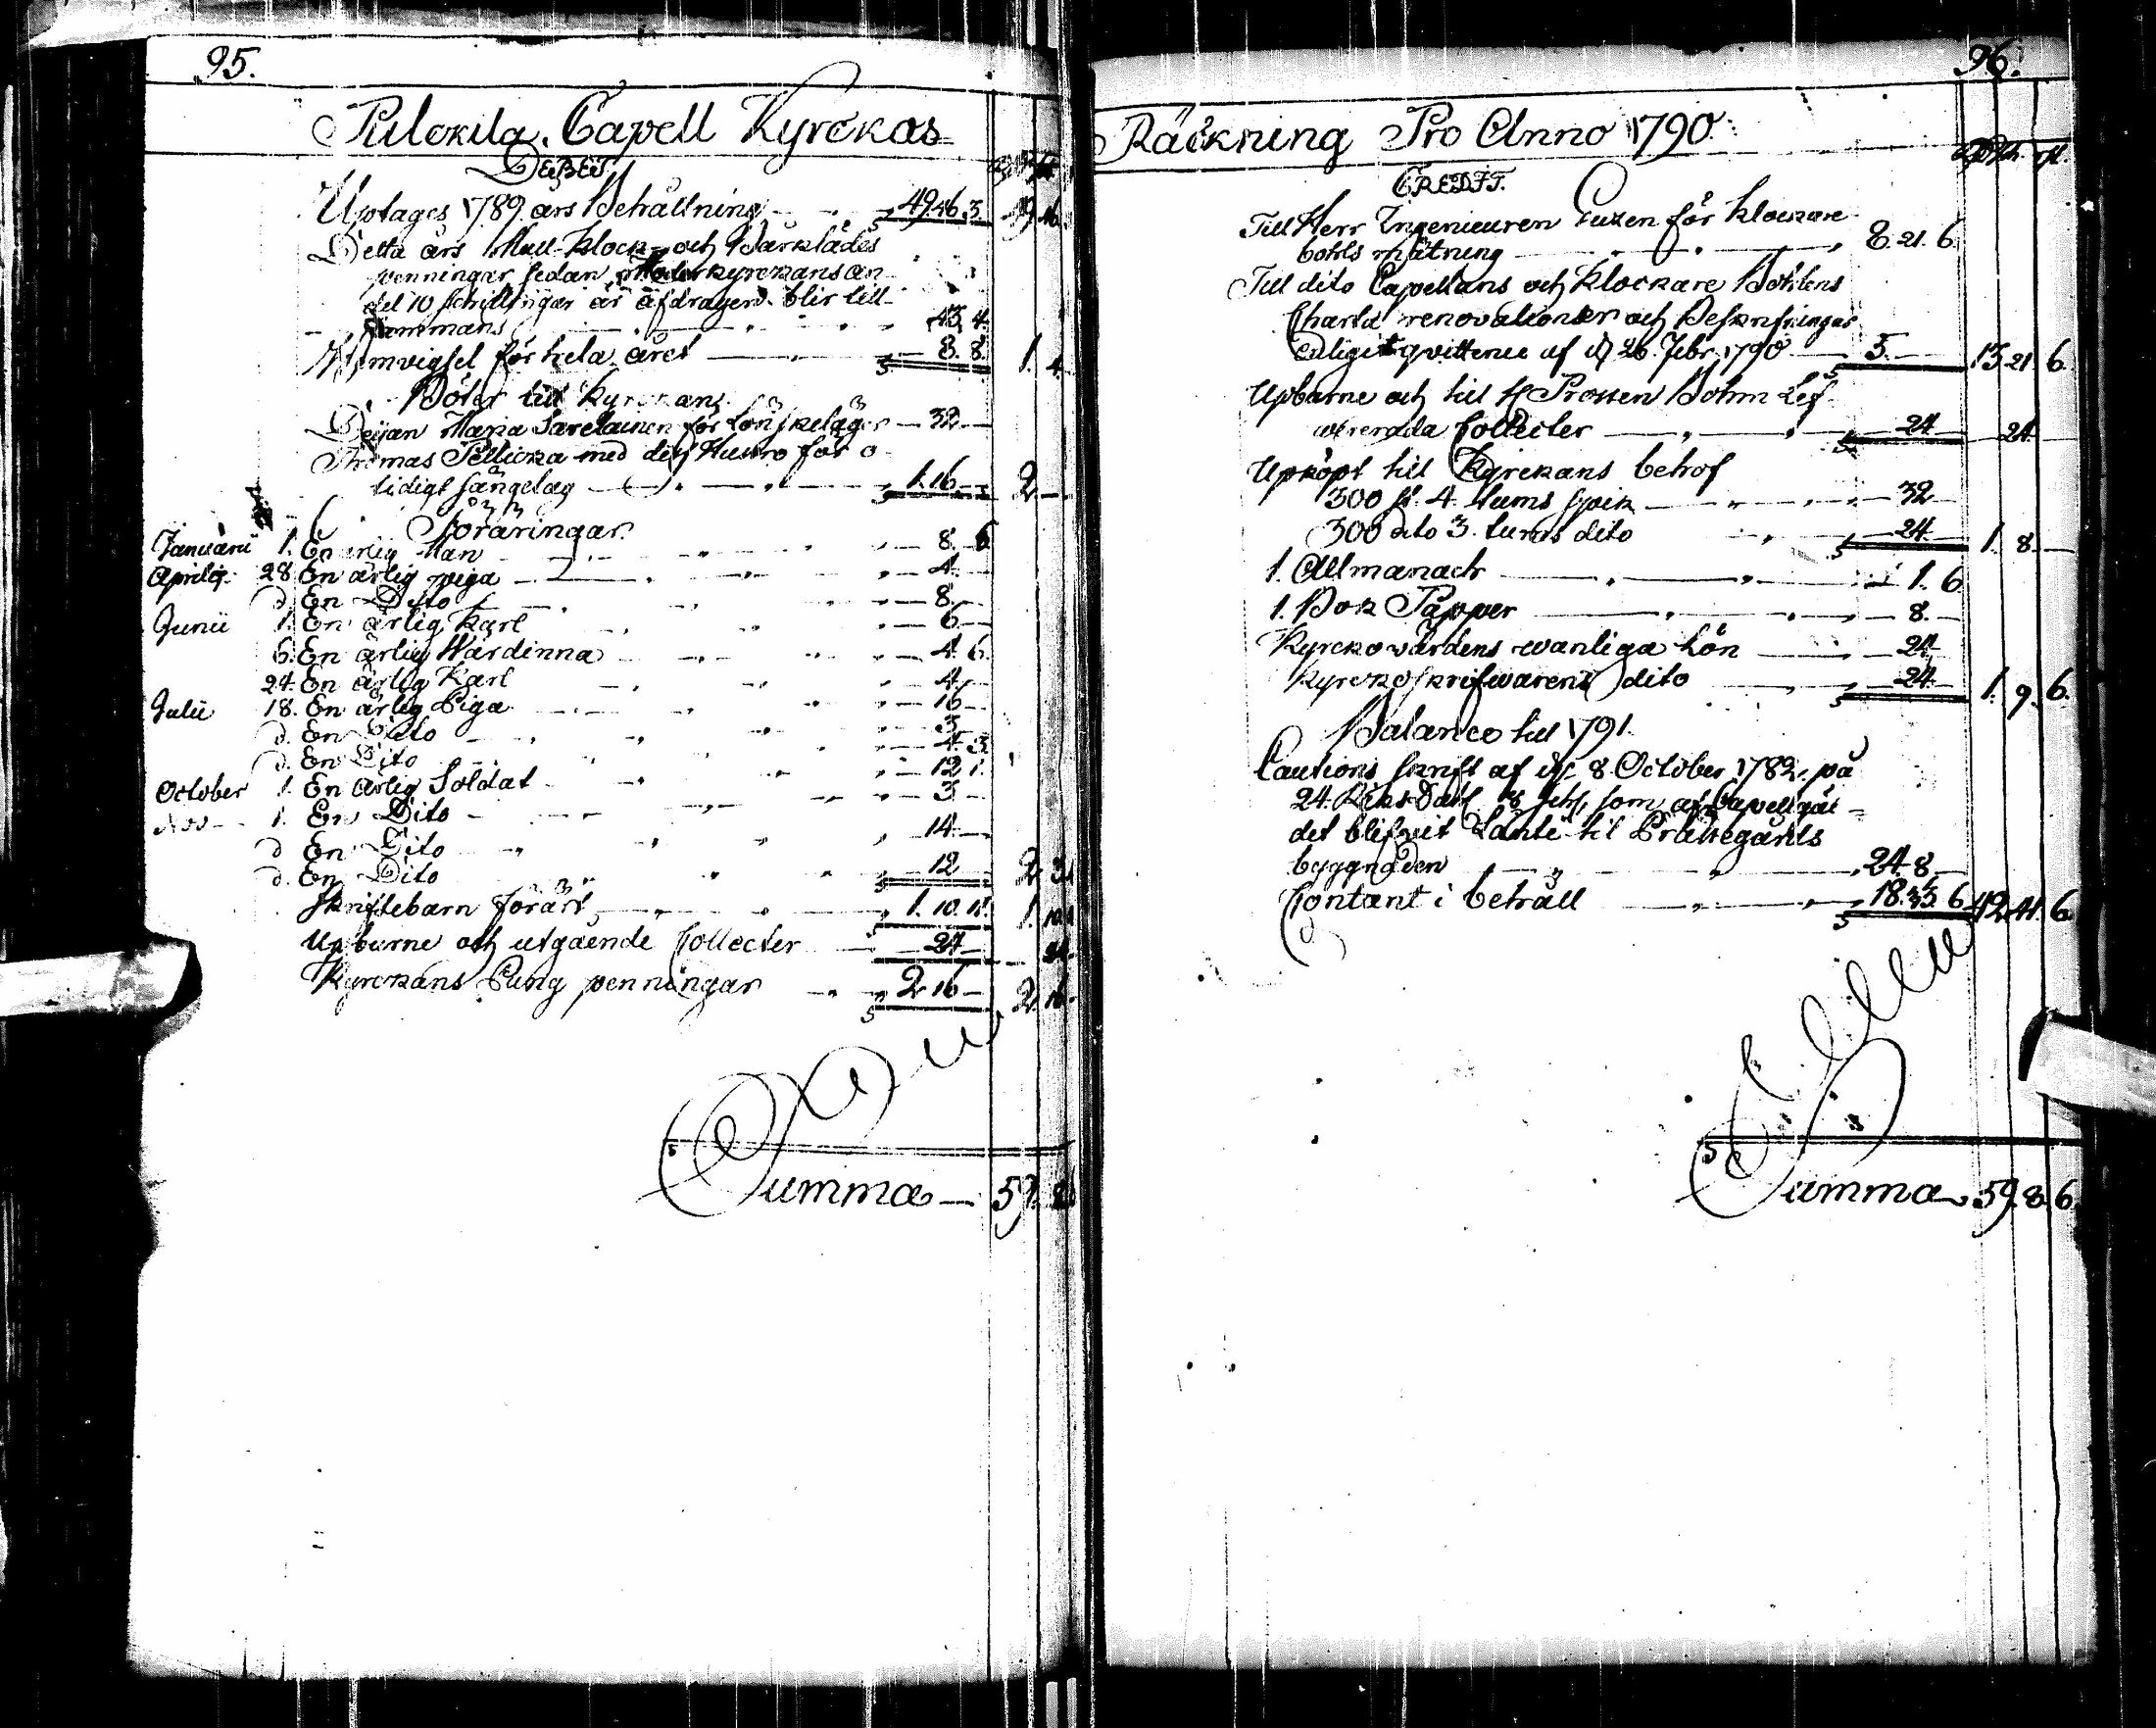 95.
Pulckila Capell Kyrckas
DEBET.
Uptages 1789 års Behållning 49. 46. 3.
Detta års Mull- Klock- och Bårklädes
penningar sedan Moderkyrckans an
del 10 schillingar är afdragen blir till
sammans 43. 4.
Wigsel för hela året 8. 8. 1. 4.
Böter till Kyrckan
Pigan Maria Sarelainen för Lönskeläger 32
Thomas Pellicka med des Hustro för o
tidigt sängelag 1. 16. 2.
Föräringar
Januarii 1. En ärlig Man 8. 6
Aprilis 28 En ärlig piga 4.
d. En Dito 8.
Junii 1. En ärlig Karl 6.
6. En ärlig Wärdinna 4. 6.
24. En ärlig Karl 4.
Julii 18. En ärlig Piga 16
d. En Dito 3
d. En Dito 4. 3.
October 1. En ärlig Soldat 12 1.
Nov 1. En Dito 3
d En Dito 14.
d. En Dito 12 2.
Skriftebarn förärt 1. 10. 11. 1. 10.
Upburne och utgående Collecter 24
Kyrckans Pung penningar 2. 16 2. 16.
Summa 59.
96.
Räckning Pro Anno 1790
CREDIT.
Till Herr Ingenieuren för Klockare
bohls mätning 8. 21. 6
Till dito Capellans och Klockare Bohlens
Charta renovationer och Beskrifningar
enligit qvittence af d 26. Febr. 1790 5. 13. 21. 6.
Upburne och till H Prosten Bohm Lef
wererada Collecter 24 24
Upköpt till Kyrckans behof
300 st. 4. tums spik 32
300 dito 3. tums dito 24 1. 8.
1. Allmanach 1. 6.
1. Bok Papper 8.
Kyrckovärdens wanliga Lön 24
Kyrckoskrifwarens dito 24 1. 9. 6.
Balance till 1791.
Cautions skrift af d. 8 October 1782. på
24. Riks Dal 8 sch, som af Capellgäl
det blifvit Lånte til Prästegårds
byggnaden 24. 8
Contant i behåll 18. 33. 6 42. 41. 6
Summa 59. 8. 6